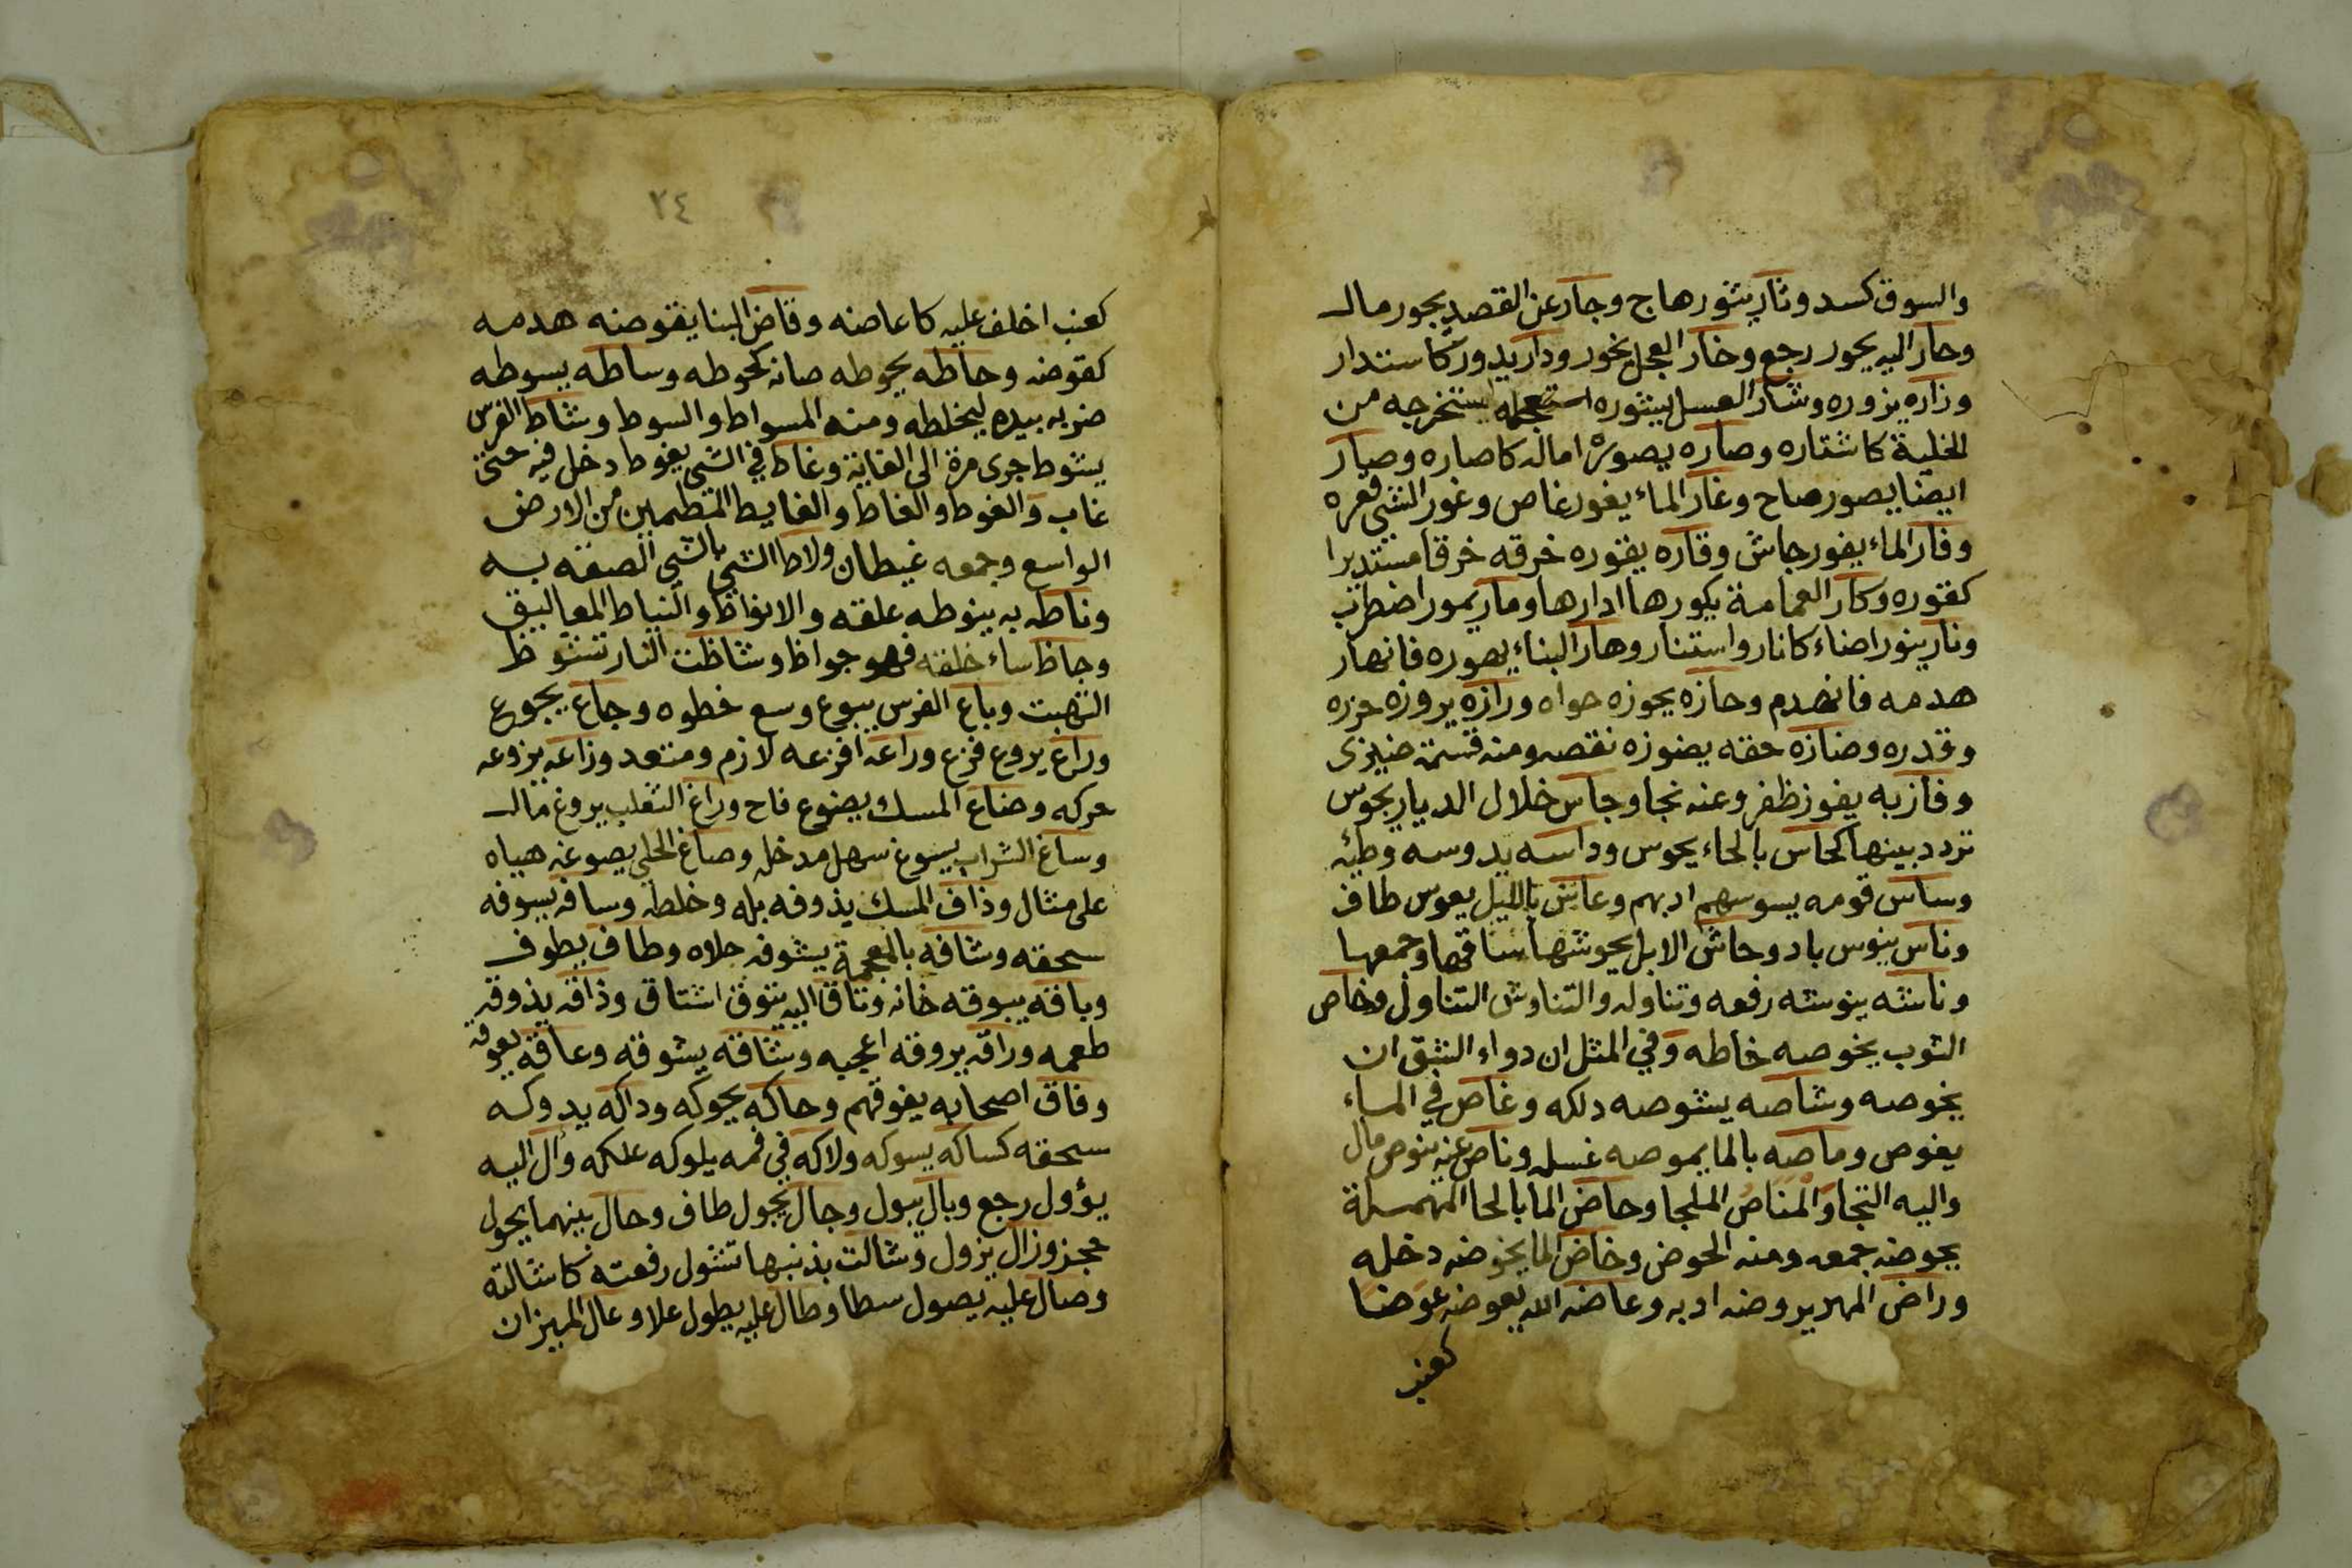 والسوق كسد وثار يثور هاج وجار عن القصد يجور مال
وحار اليه يحور رجع وخار العجل يخور ودار يدور كاستدار
وزاره يزوره وشار العسل يشوره استعجله يستخرجه من
الخلية كاشتاره وصاره يصوره اماله كاصاره وصار
ايضا يصور صاح وغار الماء يغور غاص وغور الشي قعره
وفار الماء يفور جاش وقاره يقوره خرقه خرقا مستديرا
كقوره وكار العمامة يكورها ادارها ومار يمور اضطرب
ونار ينور اضاء كانار واستنار وهار البناء يهوره فانهار
هدمه فانهدم وحازه يحوزه حواه ورازه يروزه حزره
وقدره وضازه حقه يضوزه نقصه ومنه قسمة ضيزى
وفاز به يفوز ظفر وعنه نجا وجاس خلال الديار يجوس
تردد بينها كحاس بالحاء يحوس وداسه يدوسه وطئه
وساس قومه يسوسهم ادبهم وعاس بالليل يعوس طاف
وناس ينوس باد وحاش الابل يحوشها ساقها وجمعها
وناشه ينوشه رفعه وتناوله والتناوش التناول وخاص
الثوب يخوصه خاطه وفي المثل ان دواء الشق ان
يخوصه وشاصه يشوصه دلكه وغاص في الماء
يغوص وماصه بالما يموصه غسله وناص عنه ينوص مال
واليه التجا والمناص الملجا وحاض الما بالحا المهملة
يحوضه جمعه ومنه الحوض وخاض الما يخوضه دخله
وراض المهر يروضه ادبه وعاضه الله يعوضه عوضا
كعنب
٢٤
كعنب اخلف عليه كاعاضه وقاض البنا يقوضه هدمه
كقوضه وحاطه يحوطه صانه كحوطه وساطه يسوطه
ضربه بيده ليخلطه ومنه المسواط والسوط وشاط الفرس
يشوط جرى مرة الى الغاية وغاط في الشي يغوط دخل فيه حتى
غاب والغوط والغاط والغايط المتطمين من الارض
الواسع وجمعه غيطان ولاط الشي بالشي الصقه به
وناطه به ينوطه علقه والانواط والنياط المعاليق
وجاظ ساء خلقه فهو جواظ وشاظت النار تشوظ
التهبت وباع الفرس يبوع وسع خطوه وجاع يجوع
وراع يروع فزع وراعه افزعه لازم ومتعد وزاعه يزوعه
حركه وضاع المسك يضوع فاح وراغ الثعلب يروغ مال
وساغ الشراب يسوغ سهل مدخله وصاغ الحلي يصوغه هياه
على مثال وذاف المسك يذوفه بله وخلطه وسافه يسوفه
سحقه وشافه بالمعجمة يشوفه جلاه وطاف يطوف
وباقه يبوقه خانه وتاق اليه يتوق اشتاق وذاقه يذوقه
طعمه وراقه يروقه اعجبه وشاقه يشوقه وعاقه يعوقه
وفاق اصحابه يفوقهم وحاكه يحوكه وداكه يدوكه
سحقه كساكه يسوكه ولاكه في فمه يلوكه علكه وآل اليه
يؤول رجع وبال يبول وجال يجول طاف وحال بينهما يحول
حجز وزال يزول وشالت بذنبها تشول رفعته كاشالته
وصال عليه يصول سطا وطال عليه يطول علا وعال الميزان